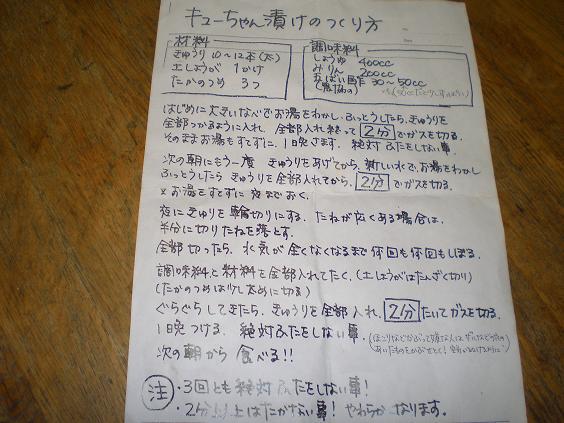 キューちゃん漬けのつくり方
材料
きゅうり 10〜12本(大)
土しょうが 1かけ
たかのつめ 3つ
調味料
しょうゆ 400cc
みりん 200cc
30〜50cc
はじめに大きいなべでお湯をわかし、ふっとうしたら、きゅうりを
全部つかるように入れ、全部入れ終って 2分 でガスを切る。
そのままお湯もすてずに、1晩さます。絶対ふたをしない事。
次の朝にもう一度 きゅうりをあげてから、新しい水で、お湯をわかし
ふっとうしたら きゅうりを全部入れてから、2分 でガスを切る。
又お湯をすてずに夜までおく。
夜にきゅりを輪切りにする。たねが広くある場合は、
半分に切りたねを落とす。
全部切ったら、水気が全くなくなるまで何回も何回もしぼる。
調味料と材料を全部入れてたく。(土しょうがはたんざく切り)
(たかのつめは少し太めに切る)
ぐらぐらしてきたら、きゅうりを全部入れ、2分 たいてガスを切る。
1晩つける。絶対ふたをしない事。
次の朝から食べる!!
注
・3回とも絶対ふたをしない事!
・2分以上はたかない事! やわらかくなります。